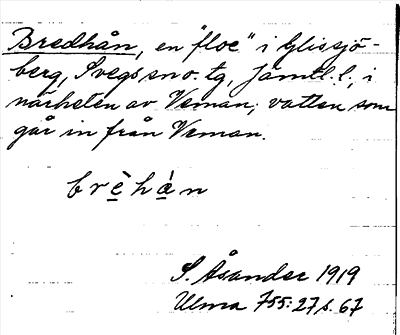 Bredhån, en "floe" i Glissjö-
berg, Svegs sn o. tg, Jämtl. l., i
närheten av Veman; vatten som
går in från Veman.
brèhán
S. Åsander 1919
Ulma 755:27 s. 67